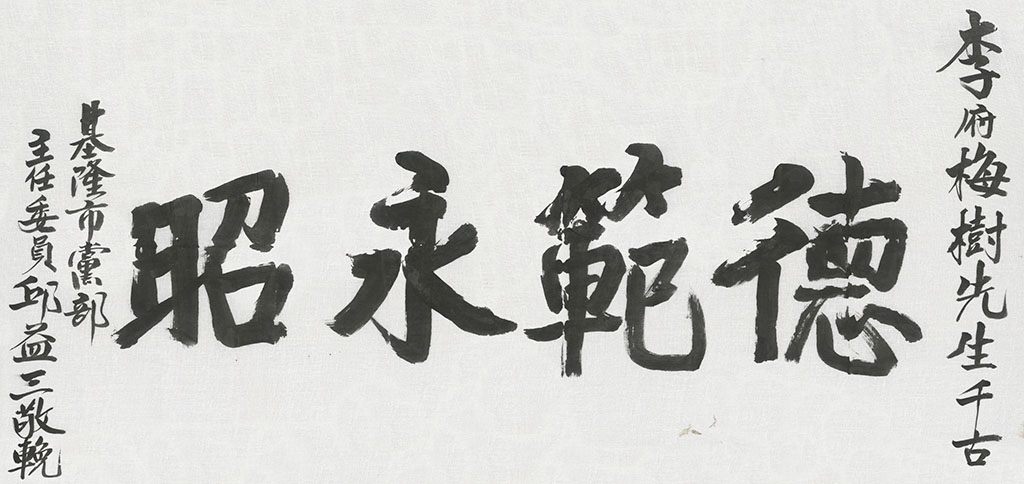 李府梅樹先生千古
德範永昭
基隆市黨部
主任委員邱益三敬輓